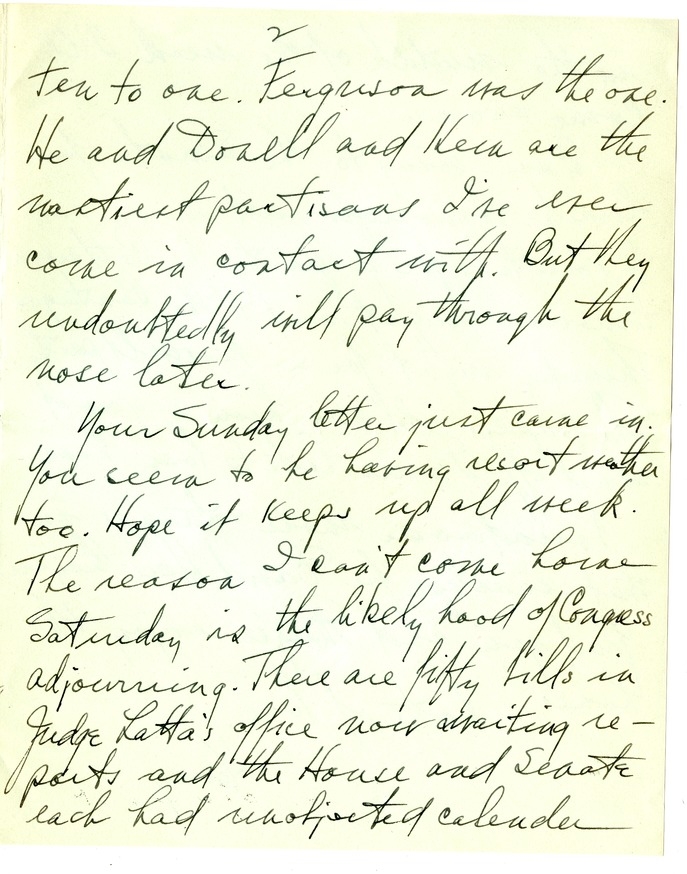 2
ten to one. Ferguson was the one.
He and Donell and Kem are the
nastiest partisans I've ever
come in contact with. But they
undoubtedly will pay through the
nose later.
Your Sunday letter just came in.
You seem to be having resort weather
too. Hope it keeps up all week.
The reason I can't come home
Saturday is the likely hood of Congress
adjourning. There are fifty bills in
Judge Latta's office now awaiting re-
ports and the House and Senate
each had unobjected calender